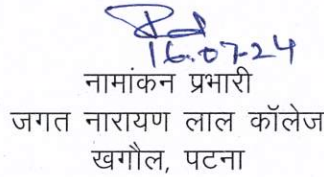 16.07-24
नामांकन प्रभारी
जगत नारायण लाल कॉलेज
खगौल, पटना